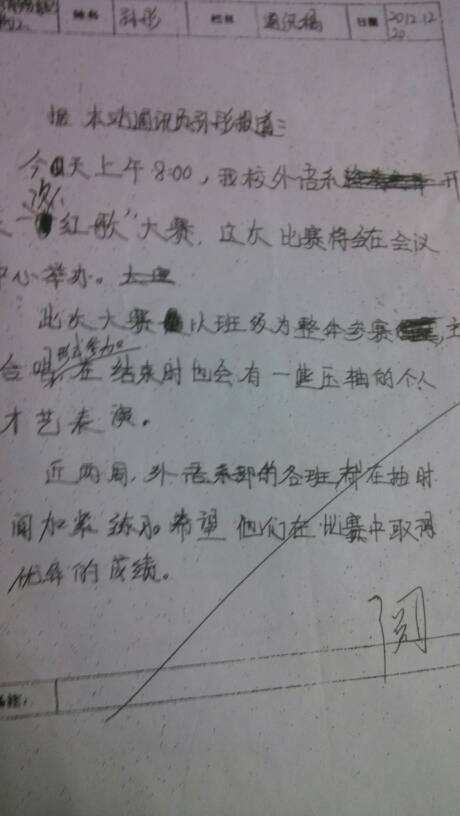 姓名 孙彤 栏目 通讯稿 日期 2012.12.20
据本站通讯员孙彤报道:
今天上午8:00,我校外语系开
"红歌"大赛,这次比赛将会在会议
中心举办。
此次大赛以班级为整体参赛,
合唱形式参加。在结束时也会有一些压轴的个人
才艺表演。
近两周,外语系部的各班,都在抽时
间加紧练习希望他们在比赛中取得
优异的成绩。
阅